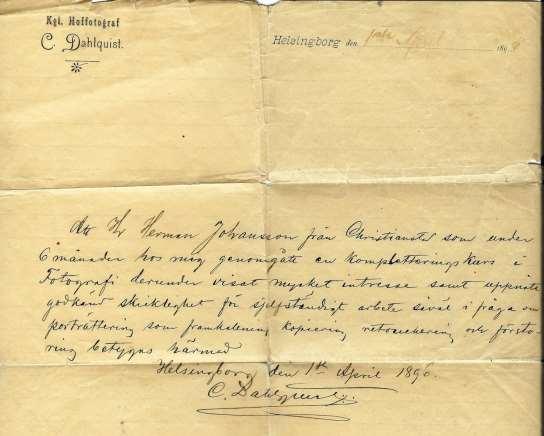 Kgl. Hoffotograf
C. Dahlquist.
Helsingborg den April 189
Att Hr Herman Johansson från Christianstad som under
6 månader hos mig genomgått en kompletteringskurs i
Fotografi derunder visat mycket intresse samt uppnått
godkänd skicklighet för sjelfständigt arbete såväl i fråga om
porträttering som framkallning kopiering retouchering och försto-
ring betygas härmed
Helsingborg den 1st April 1896.
C. Dahlquist.